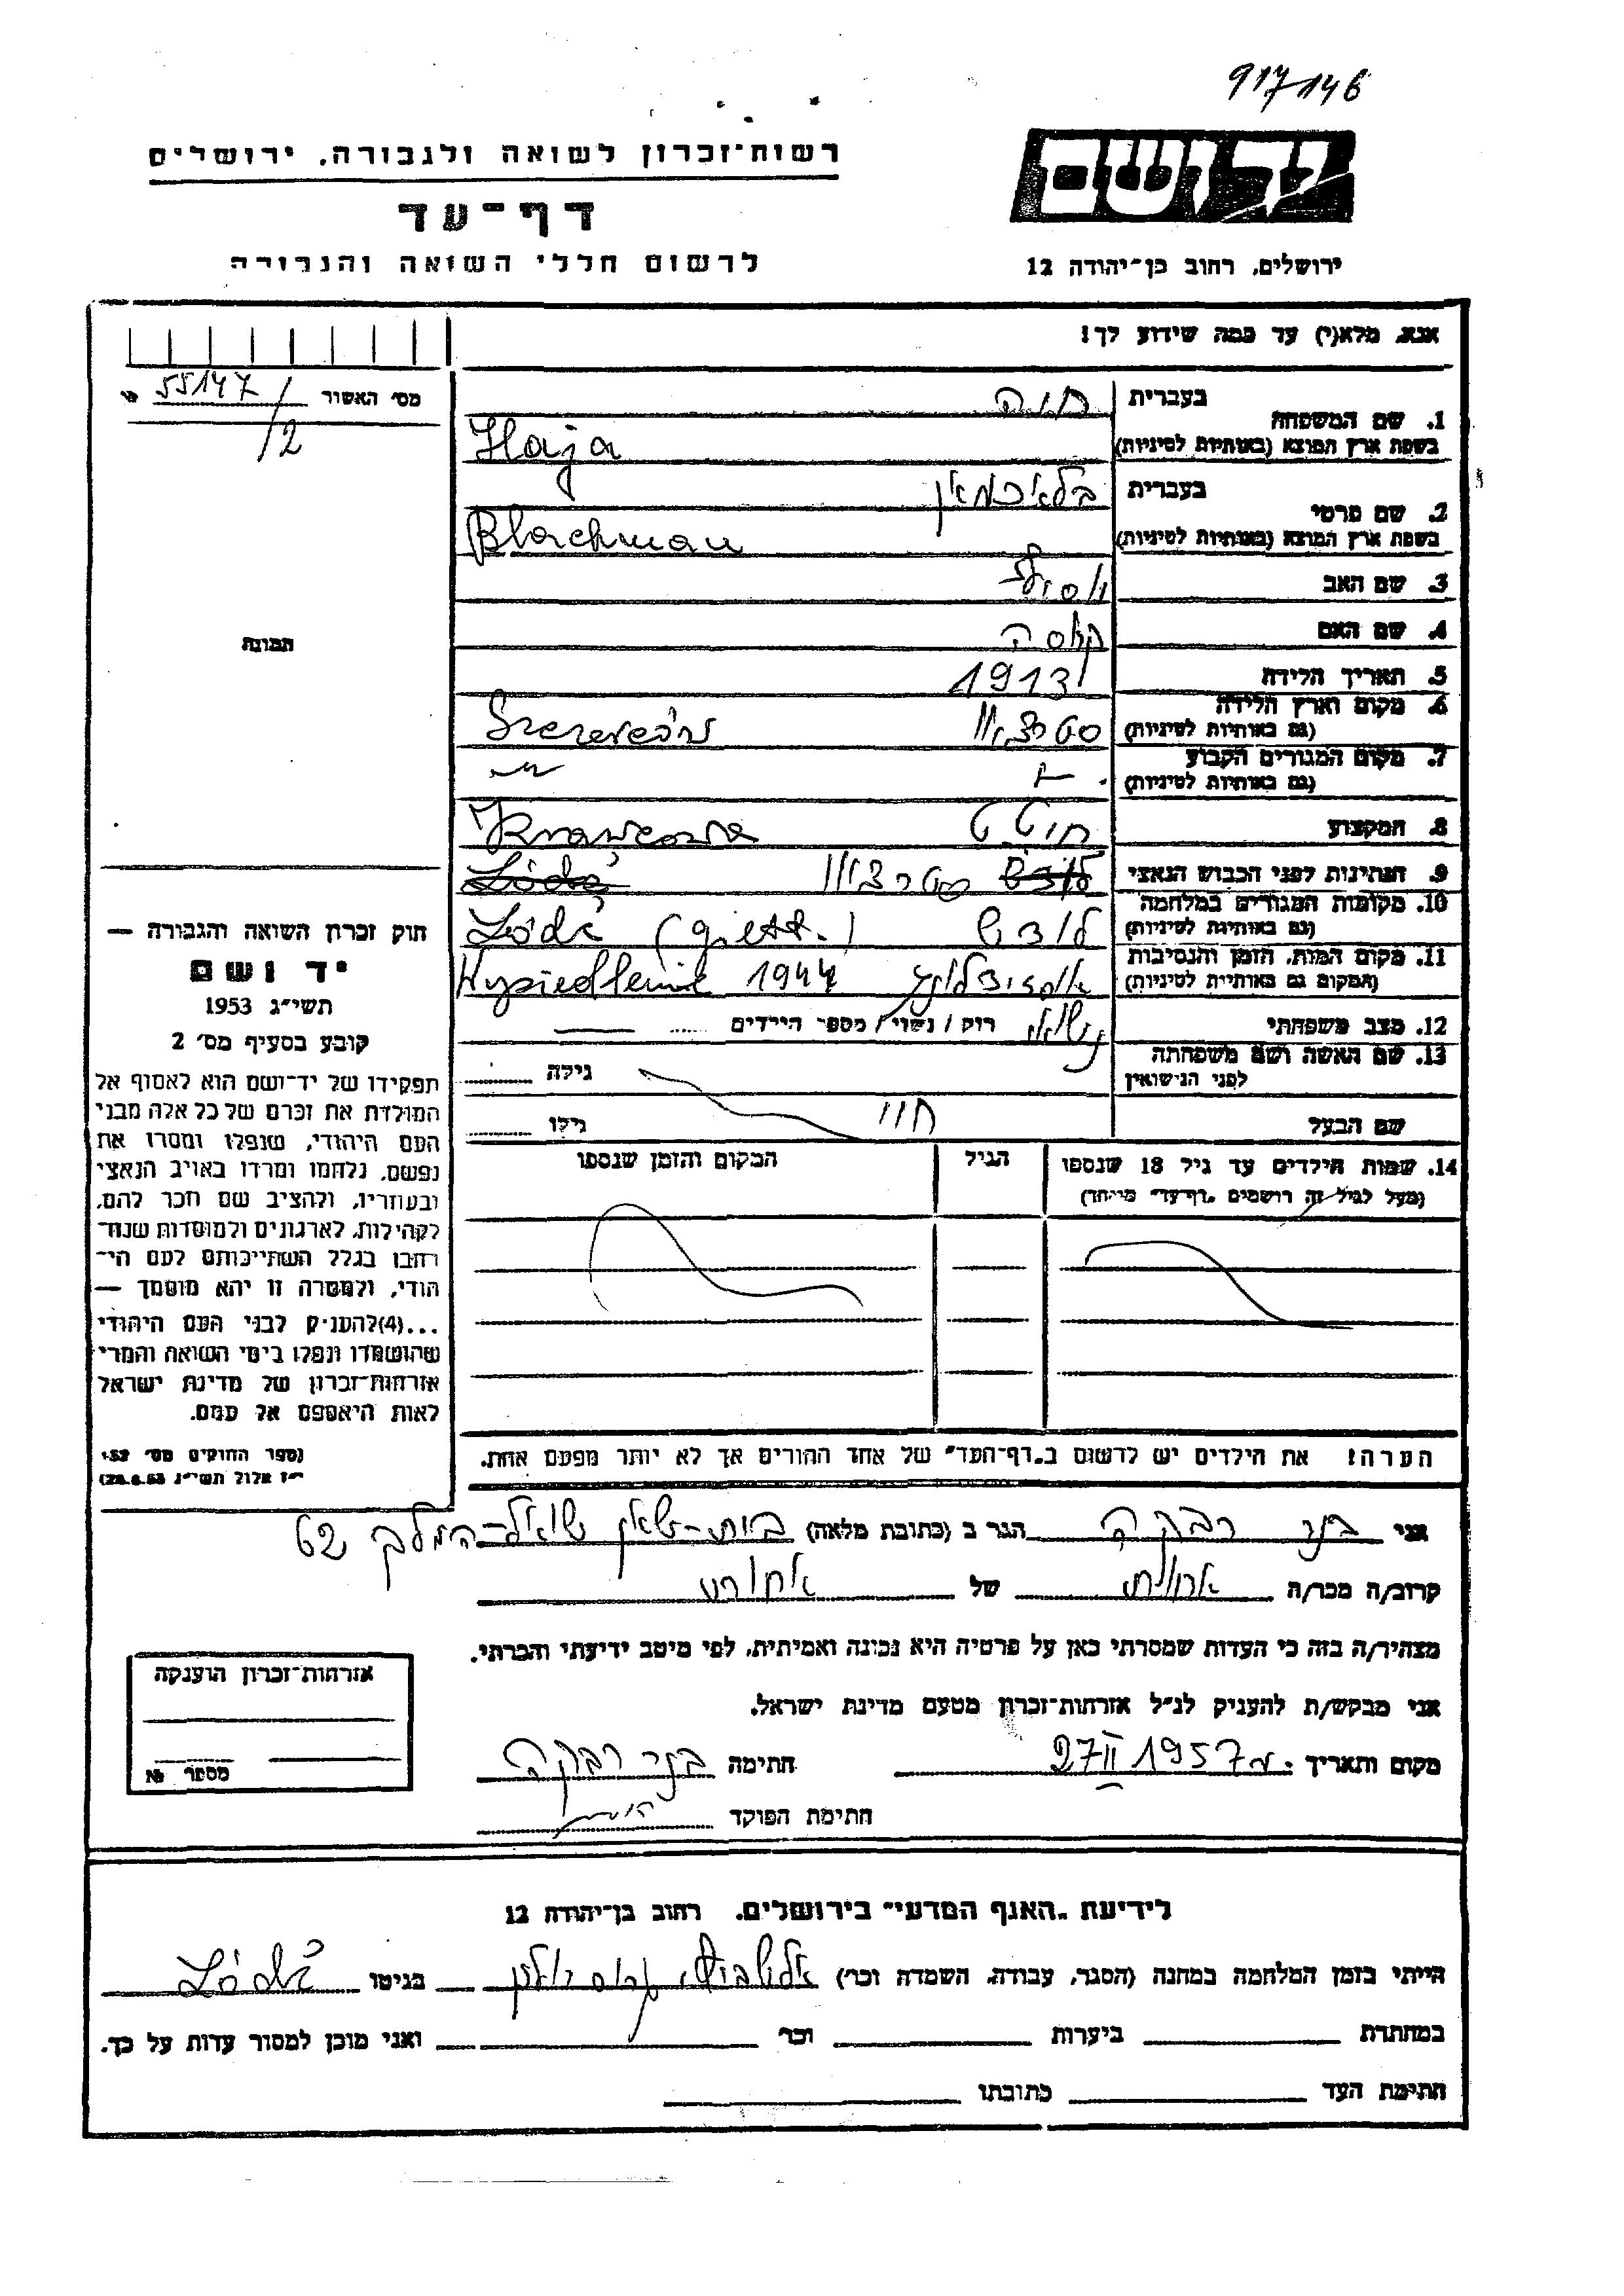 917146
רשות־זכרון לשואה ולגבורה, ירושלים
יד ושם
דף־עד
לרשום חללי השואה והגבורה
ירושלים, רחוב בן־יהודה 12
אנא, מלא(י) עד כמה שידוע לך!
מס' האשור 55147 №
/2
1. שם המשפחה
בעברית חיה
בשפת ארץ המוצא (באותיות לטיניות) Haja
2. שם פרטי
בעברית בלאכמאן
בשפת ארץ המוצא (באותיות לטיניות) Blachman
3. שם האב
4. שם האם
תמונה
5. תאריך הלידה 1913
6. מקום וארץ הלידה
(גם באותיות לטיניות)
7. מקום המגורים הקבוע
(גם באותיות לטיניות)
8. המקצוע Krawcowa
9. הנתינות לפני הכבוש הנאצי
10. מקומות המגורים במלחמה
(גם באותיות לטיניות) לודש Łódź (giett.)
11. מקום המות, הזמן והנסיבות
(המקום גם באותיות לטיניות) Wysiedlenie 1944
12. מצב משפחתי רוק / נשוי / מספר הילדים
13. שם האשה ושם משפחתה
לפני הנישואין גילה
שם הבעל גילו
14. שמות הילדים עד גיל 18 שנספו
(מעל לגיל זה רושמים "דף־עד" מייחד)
הגיל
המקום והזמן שנספו
חוק זכרון השואה והגבורה —
יד ושם
תשי"ג 1953
קובע בסעיף מס' 2
תפקידו של יד־ושם הוא לאסוף אל
המולדת את זכרם של כל אלה מבני
העם היהודי, שנפלו ומסרו את
נפשם, נלחמו ומרדו באויב הנאצי
ובעוזריו, ולהציב שם וזכר להם,
לקהילות, לארגונים ולמוסדות שנח־
רבו בגלל השתייכותם לעם הי־
הודי, ולמטרה זו יהא מוסמך —
...(4) להעניק לבני העם היהודי
שהושמדו ונפלו בימי השואה והמרי
אזרחות־זכרון של מדינת ישראל
לאות היאספם אל עמם.
(ספר החוקים מס' 132
י"ז אלול תשי"ג 28.8.53)
הערה! את הילדים יש לרשום ב"דף־העד" של אחד ההורים אך לא יותר מפעם אחת.
אני רבקה הגר ב (כתובת מלאה) בית־שאן שאול־המלך 62
קרוב/ה מכר/ה של
מצהיר/ה בזה כי העדות שמסרתי כאן על פרטיה היא נכונה ואמיתית, לפי מיטב ידיעתי והכרתי.
אני מבקש/ת להעניק לנ"ל אזרחות־זכרון מטעם מדינת ישראל.
מקום ותאריך 27 II 1957 חתימה רבקה
חתימת הפוקד
אזרחות־זכרון הוענקה
מספר №
לידיעת "האגף המדעי" בירושלים, רחוב בן־יהודה 12
הייתי בזמן המלחמה במחנה (הסגר, עבודה, השמדה וכו') בגיטו Łódź
במחתרת ביערות וכו' ואני מוכן למסור עדות על כך.
חתימת העד כתובתו